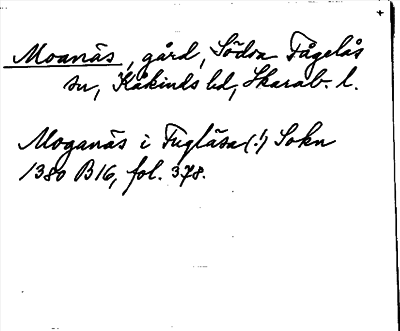 Moanäs, gård, Södra Fågelås
sn, Kåkinds hd, Skarab. l.
Moganäs i Fuglåsa (!) Sokn
1380 B16, fol. 378.